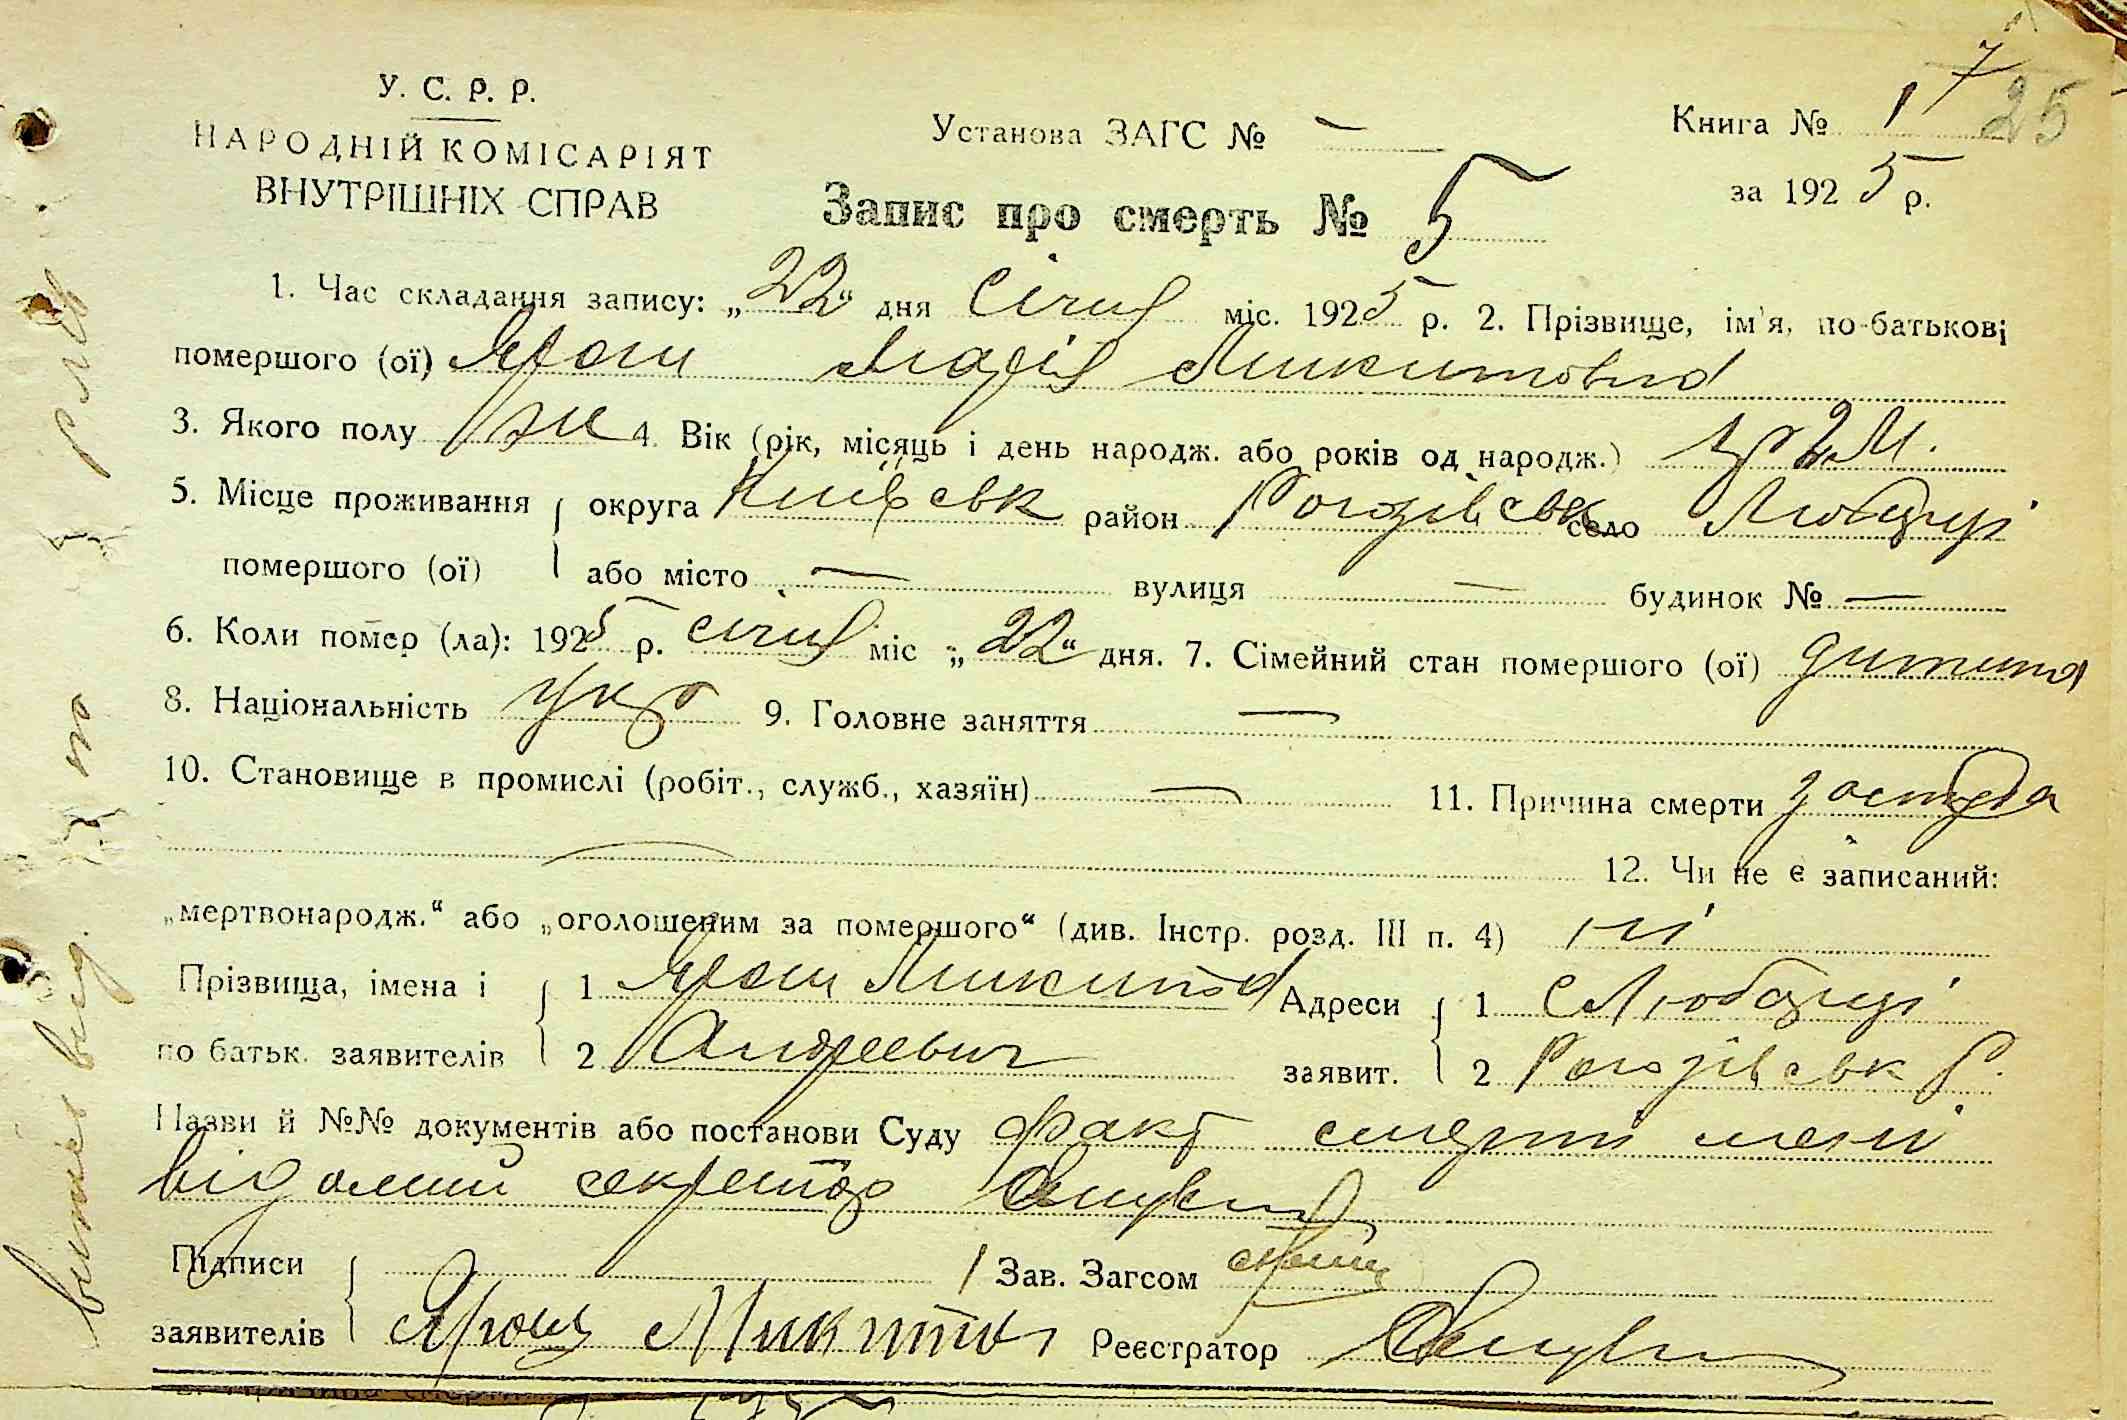 7
25
У. С. Р. Р.
НАРОДНІЙ КОМІСАРІЯТ
ВНУТРІШНІХ СПРАВ
Установа ЗАГС № —
Книга № 1
за 1925 р.
Запис про смерть № 5
1. Час складання запису: „22“ дня Січня міс. 1925 р. 2. Прізвище, ім'я, по-батькові
помершого (ої) Ярош Марія Микитовна
3. Якого полу ж 4. Вік (рік, місяць і день народж. або років од народж.) 1 р 2 м.
5. Місце проживання округа Київськ район Рогозівськ село Любарці
помершого (ої) або місто — вулиця — будинок № —
6. Коли помер (ла): 1925 р. січня міс „22“ дня. 7. Сімейний стан помершого (ої) дитина
8. Національність укр 9. Головне заняття —
10. Становище в промислі (робіт., служб., хазяїн) — 11. Причина смерти застуда
12. Чи не є записаний:
„мертвонародж.“ або „оголошеним за помершого“ (див. Інстр. розд. III п. 4) ні
Прізвища, імена і 1 Ярош Микита Адреси 1 с Любарці
по батьк. заявителів 2 Андреевич заявит. 2 Рогозівськ Р.
Назви й №№ документів або постанови Суду факт смерті мені
відомий секретар
Підписи Зав. Загсом
заявителів Ярош Микита Реєстратор